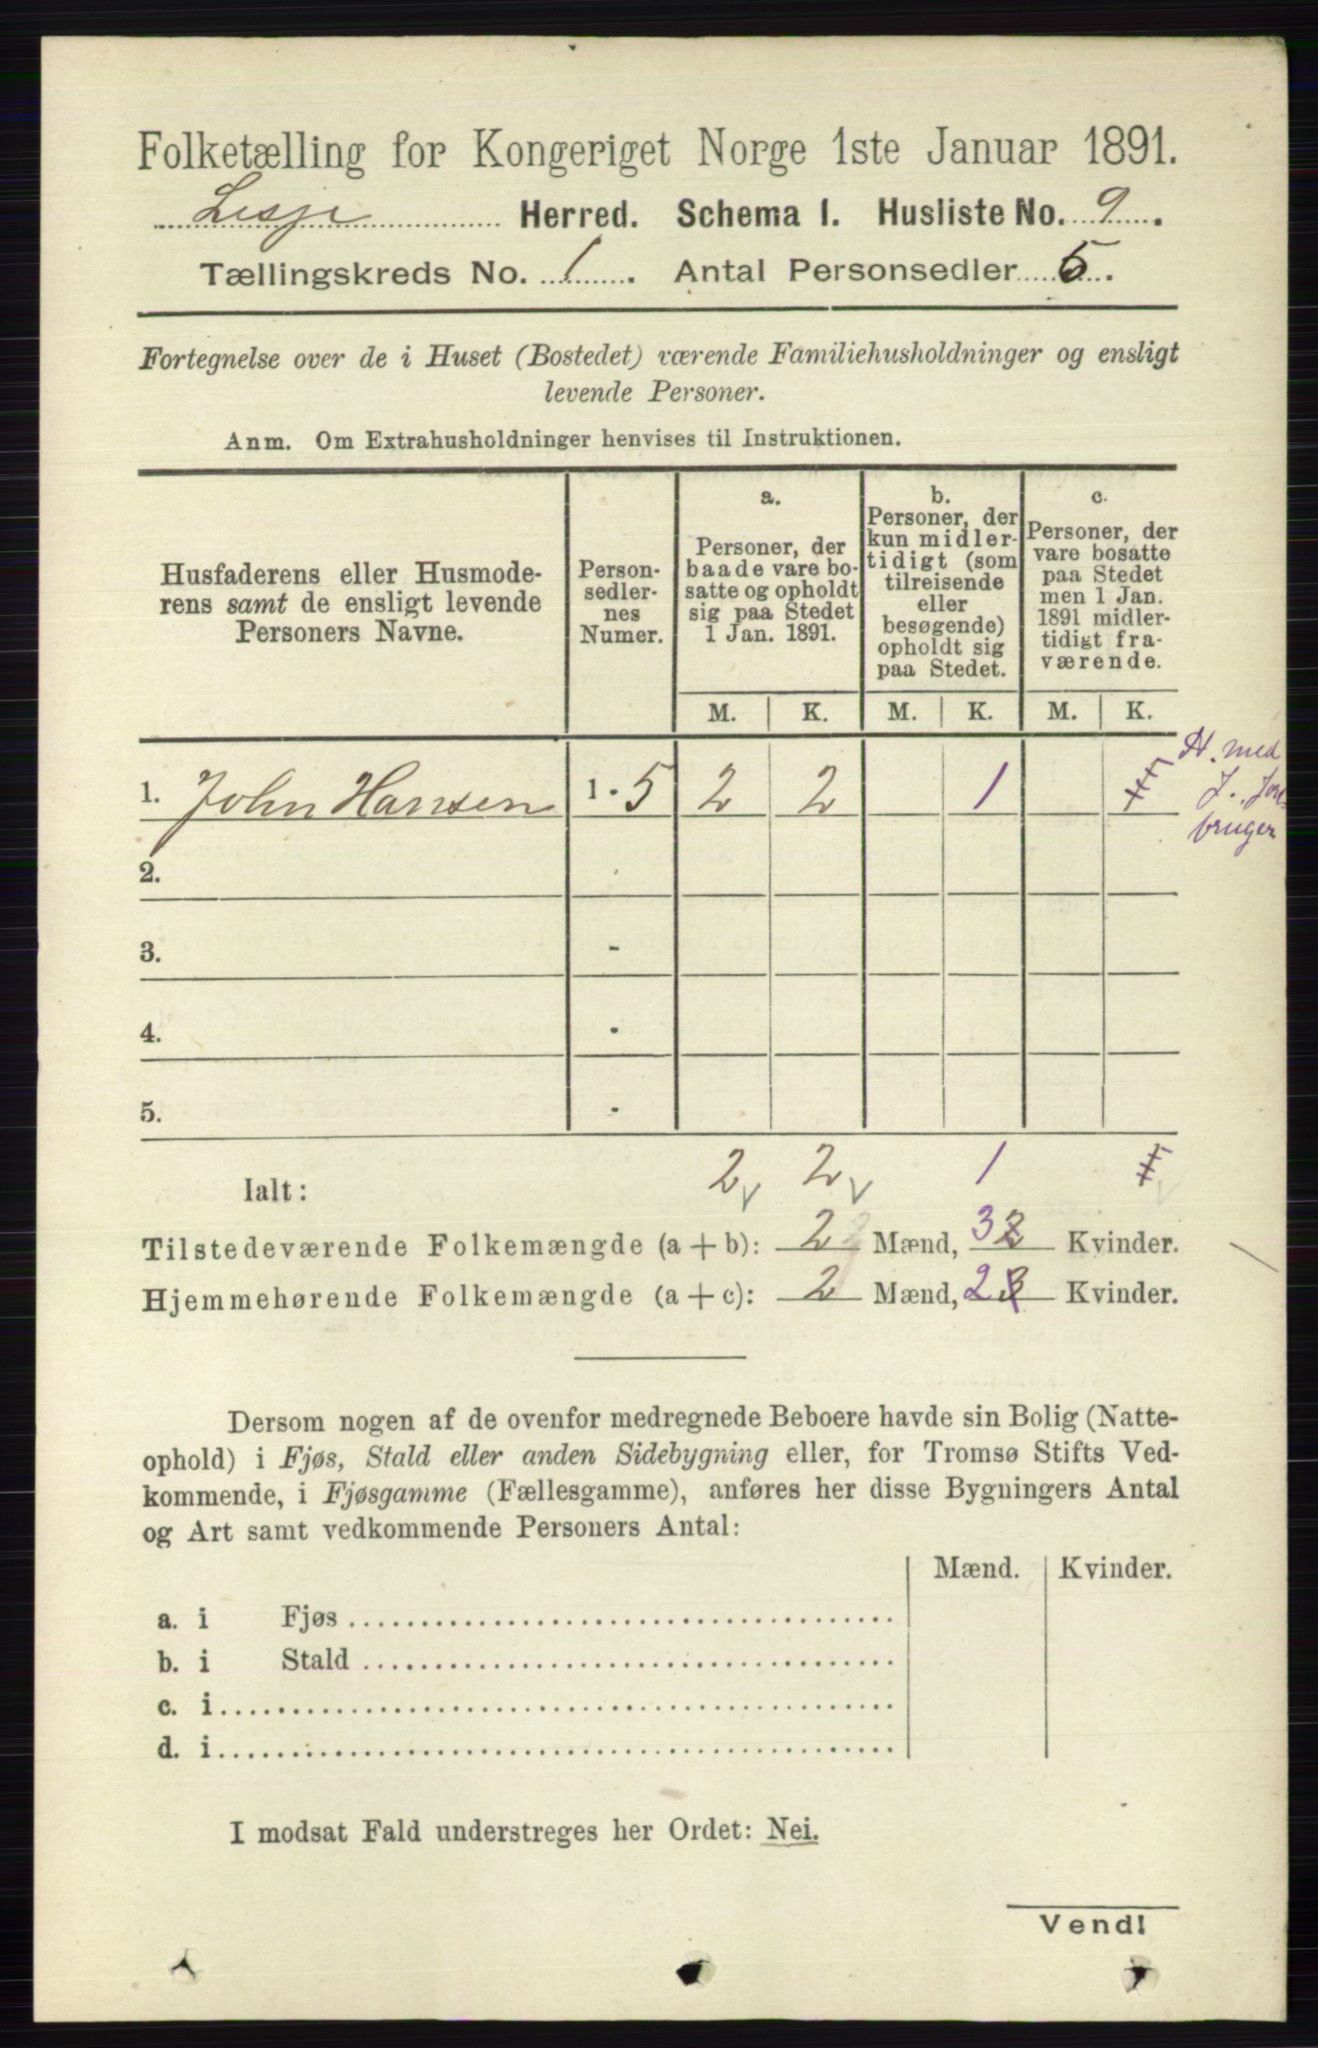 Folketælling for Kongeriget Norge 1ste Januar 1891.
Lesje Herred. Schema 1. Husliste No. 9.
Tællingskreds No. 1. Antal Personsedler 5.
Fortegnelse over de i Huset (Bostedet) værende Familiehusholdninger og ensligt
levende Personer.
Anm. Om Extrahusholdninger henvises til Instruktionen.
Husfaderens eller Husmode-
rens samt de ensligt levende
Personers Navne.
Person-
sedler-
nes
Numer.
a.
Personer, der
baade vare bo-
satte og opholdt
sig paa Stedet
1 Jan. 1891.
b.
Personer, der
kun midler-
tidigt (som
tilreisende
eller
besøgende)
opholdt sig
paa Stedet.
c.
Personer, der
vare bosatte
paa Stedet
men 1 Jan.
1891 midler-
tidigt fra-
værende.
M. K. M. K. M. K.
1. John Hansen 1 - 5 2 2 1 1
H. med
J.
bruger
2.
3. -
4. -
5. -
Ialt: 2 2 1 1
Tilstedeværende Folkemængde (a + b): 2 Mænd, 3 2 Kvinder.
Hjemmehørende Folkemængde (a + c): 2 Mænd, 2 3 Kvinder.
Dersom nogen af de ovenfor medregnede Beboere havde sin Bolig (Natte-
ophold) i Fjøs, Stald eller anden Sidebygning eller, for Tromsø Stifts Ved-
kommende, i Fjøsgamme (Fællesgamme), anføres her disse Bygningers Antal
og Art samt vedkommende Personers Antal:
Mænd. Kvinder.
a. i Fjøs
b. i Stald
c. i
d. i
I modsat Fald understreges her Ordet: Nei.
Vend!